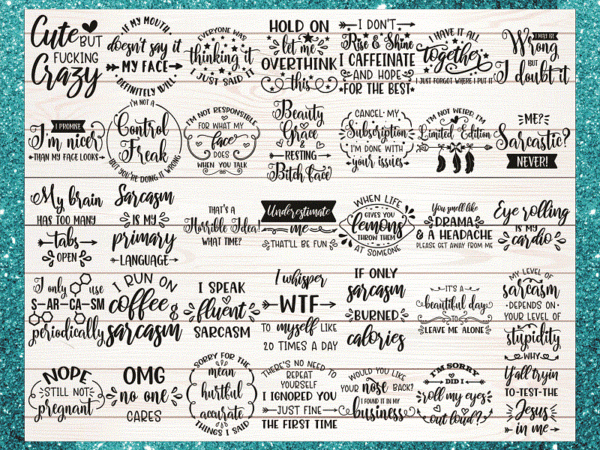 Cute BUT
FUCKING
Crazy
IF MY MOUTH
doesn't say it
MY FACE
DEFINITELY WILL
EVERYONE WAS
thinking it
I JUST SAID IT
HOLD ON
let me
OVERTHINK
this
I DON'T
Rise & Shine
I CAFFEINATE
AND HOPE
FOR THE BEST
I HAVE IT ALL
Together
I JUST FORGOT WHERE I PUT IT
I MAY BE
Wrong
BUT
I doubt it
I PROMISE
I'm nicer
THAN MY FACE LOOKS
I'M NOT A
Control
Freak
BUT YOU'RE DOING IT WRONG
I'M NOT RESPONSIBLE
FOR WHAT MY
face
DOES
WHEN YOU TALK
Beauty
Grace
&
RESTING
Bitch Face
CANCEL MY
Subscription
I'M DONE WITH
your issues
I'M NOT WEIRD I'M
Limited Edition
ME?
Sarcastic?
NEVER!
My brain
HAS TOO MANY
tabs
OPEN
Sarcasm
IS MY
primary
LANGUAGE
THAT'S A
Horrible Idea!
WHAT TIME?
Underestimate
me
THAT'LL BE FUN
WHEN LIFE
GIVES YOU
lemons
THROW THEM
AT SOMEONE
You smell like
DRAMA
& A HEADACHE
PLEASE GET AWAY FROM ME
Eye rolling
IS MY
cardio
I only use
S-AR-CA-SM
periodically
I RUN ON
coffee &
sarcasm
I SPEAK
fluent
SARCASM
I whisper
WTF
TO myself LIKE
20 TIMES A DAY
IF ONLY
sarcasm
BURNED
calories
IT'S A
beautiful day
TO
LEAVE ME ALONE
MY LEVEL OF
sarcasm
DEPENDS ON
YOUR LEVEL OF
stupidity
WHY
NOPE
STILL NOT
pregnant
OMG
no one
CARES
SORRY FOR THE
mean
hurtful
accurate
THINGS I SAID
THERE'S NO NEED TO
REPEAT
YOURSELF
I IGNORED YOU
JUST FINE
THE FIRST TIME
WOULD YOU LIKE
YOUR nose BACK?
I FOUND IT IN MY
business
I'M SORRY
DID I
roll my eyes
out loud?
Y'all tryin
TO-TEST-THE
Jesus
in me